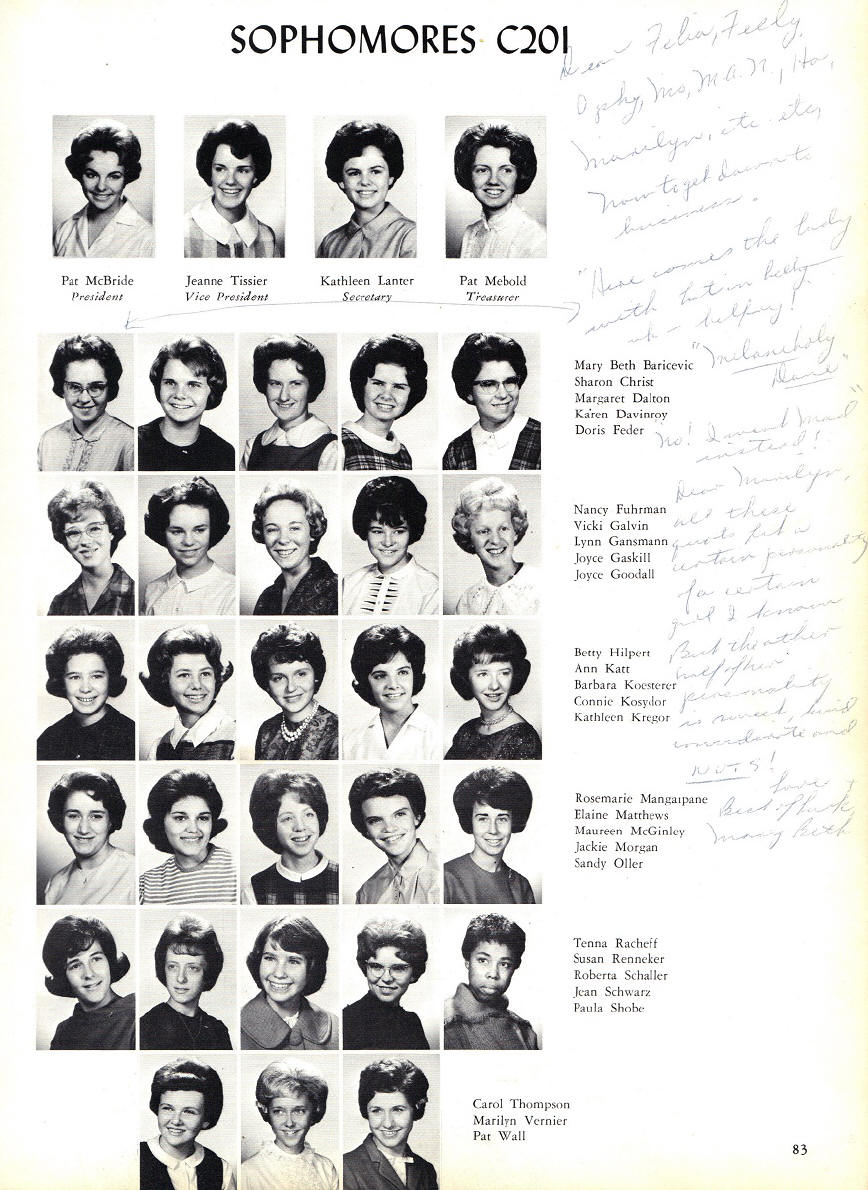 SOPHOMORES C201
Dear Felia, Feely,
Ophy, Mo, M.A.N., Ho,
Marilyn, etc. etc,
Now to get down to
business.
"Here comes the lady
with hot in
uh - helping!
"Melancholy
Dane"
"No! I want Maid
instead!"
Dear Marilyn,
all these
quots fit a
certain personality
for certain
girl I know
But the other
half of her
personality
is sweet, kind
considerate and
NUTS!
Love +
Best of luck
Mary Beth
Pat McBride
President
Jeanne Tissier
Vice President
Kathleen Lanter
Secretary
Pat Mebold
Treasurer
Mary Beth Baricevic
Sharon Christ
Margaret Dalton
Karen Davinroy
Doris Feder
Nancy Fuhrman
Vicki Galvin
Lynn Gansmann
Joyce Gaskill
Joyce Goodall
Betty Hilpert
Ann Katt
Barbara Koesterer
Connie Kosydor
Kathleen Kregor
Rosemarie Mangaipane
Elaine Matthews
Maureen McGinley
Jackie Morgan
Sandy Oller
Tenna Racheff
Susan Renneker
Roberta Schaller
Jean Schwarz
Paula Shobe
Carol Thompson
Marilyn Vernier
Pat Wall
83